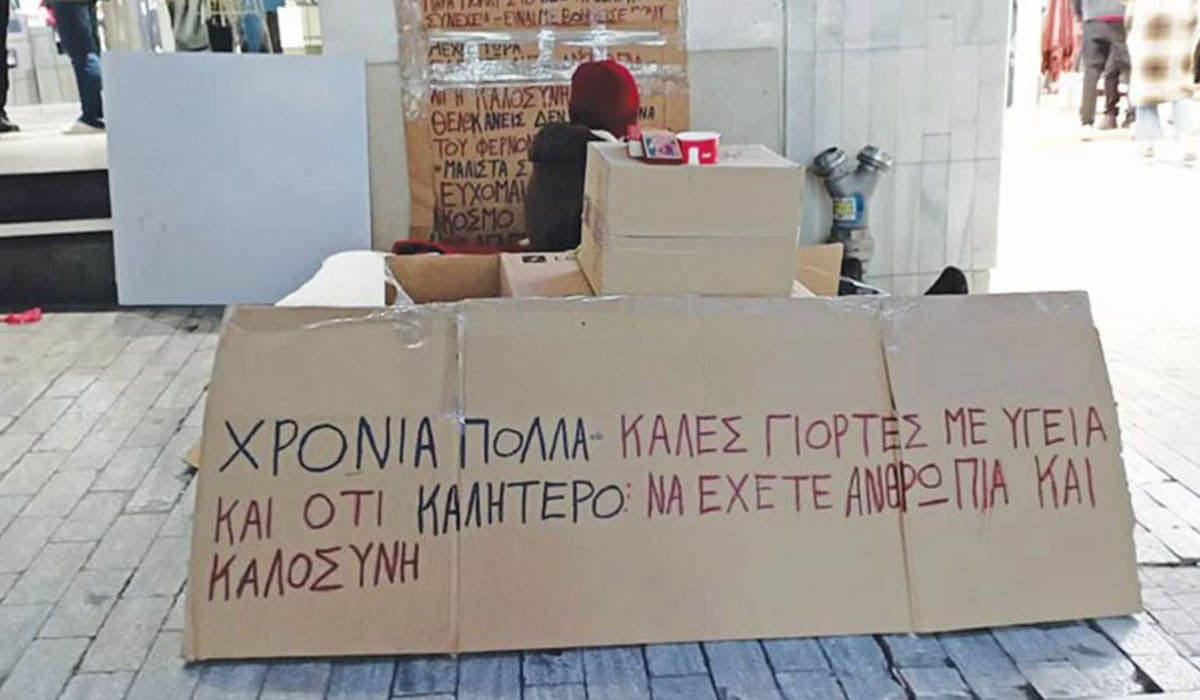 ΣΥΝΕΧΕΙΑ - ΕΙΝΑΙ ΜΕ
ΜΕΧΡΙ ΤΩΡΑ
Η ΚΑΛΟΣΥΝΗ
ΘΕΛΩ ΚΑΝΕΙΣ ΔΕΝ
ΤΟΥ
- ΜΑΛΙΣΤΑ
ΕΥΧΟΜΑΙ
ΚΟΣΜΟ
ΧΡΟΝΙΑ ΠΟΛΛΑ - ΚΑΛΕΣ ΓΙΟΡΤΕΣ ΜΕ ΥΓΕΙΑ
ΚΑΙ ΟΤΙ ΚΑΛΗΤΕΡΟ: ΝΑ ΕΧΕΤΕ ΑΝΘΡΩΠΙΑ ΚΑΙ
ΚΑΛΟΣΥΝΗ